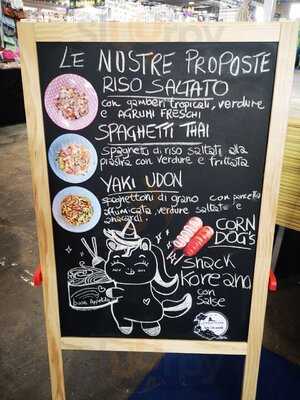 LE NOSTRE PROPOSTE
RISO SALTATO
con gamberi tropicali, verdure
e AGRUMI FRESCHI
SPAGHETTI THAI
spaghetti di riso saltati alla
piastra con verdure e frittata
YAKI UDON
spaghettoni di grano con pancetta
affumicata, verdure saltate e
anacardi.
CORN
DOG's
snack
Koreano
con
salse